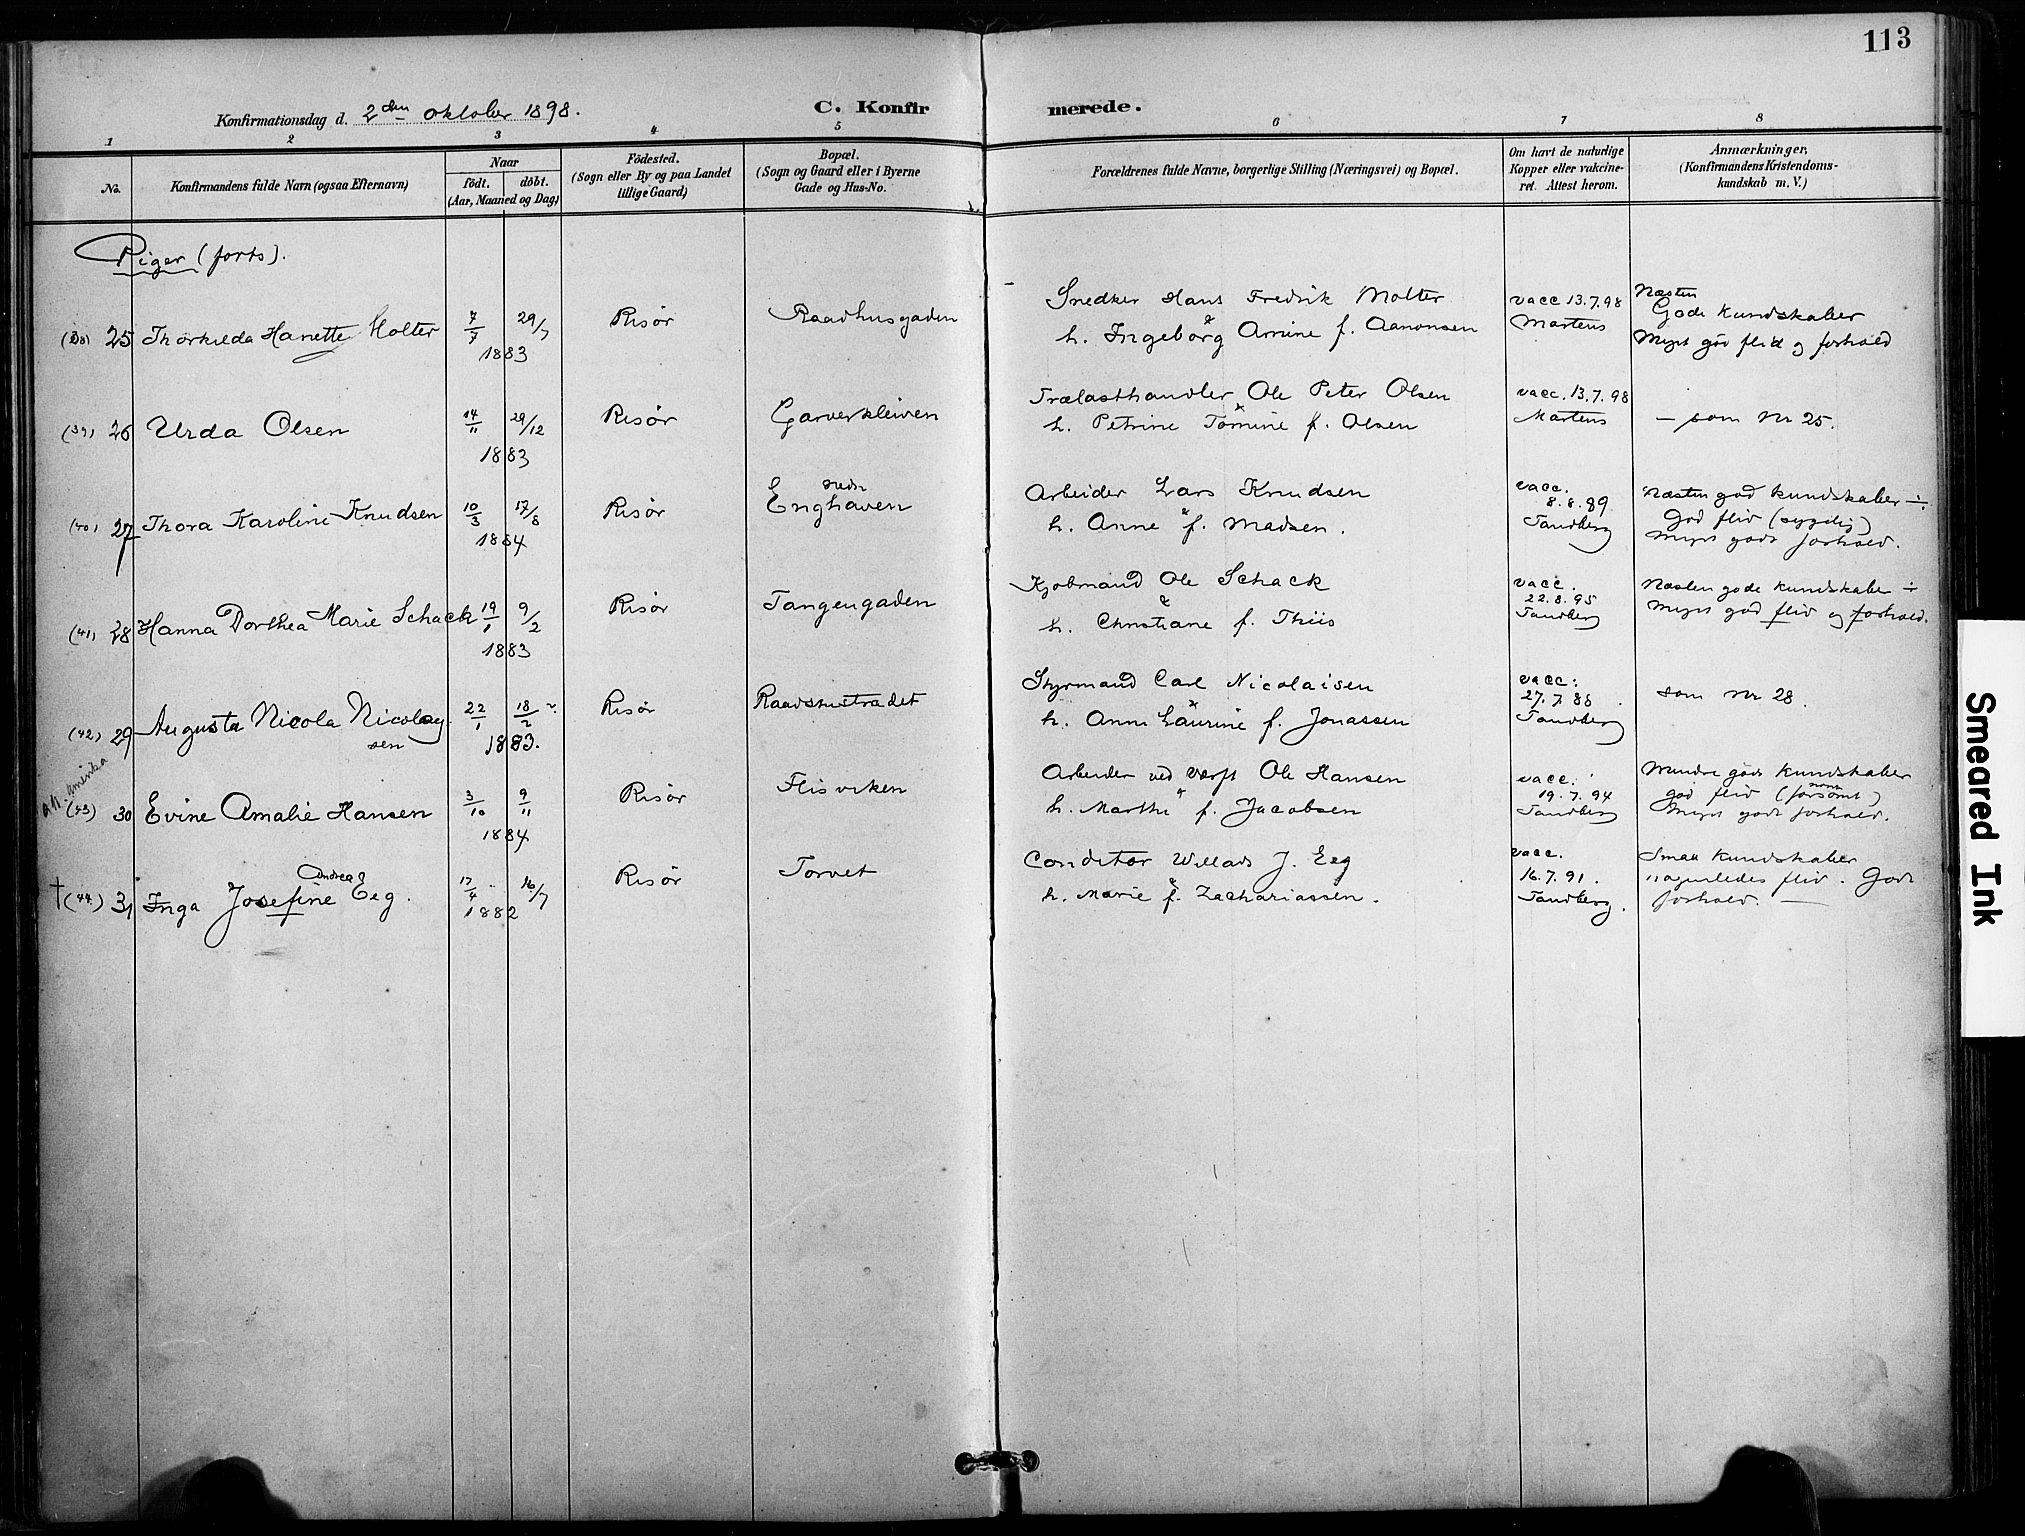 113
Konfirmationsdag d. 2den oktober 1898.
C. Konfirmerede.
1 2 3 4 5 6 7 8
No.
Konfirmandens fulde Navn (ogsaa Efternavn)
Naar
født. døbt.
(Aar, Maaned og Dag)
Födested.
(Sogn eller By og paa Landet
tillige Gaard)
Bopæl.
(Sogn og Gaard eller i Byerne
Gade og Hus-No.
Forældrenes fulde Navne, borgerlige Stilling (Næringsvei) og Bopæl.
Om havt de naturlige
Kopper eller vakcine-
ret. Attest herom.
Anmærkninger,
(Konfirmandens Kristendoms-
kundskab m. V.)
Piger (forts).
(38) 25 Thorkilda Hanette Molter 7/7 29/7 1883 Risør Raadhusgaden
Snedker Hans Fredrik Molter
h. Ingeborg Amine f. Aanonsen
vacc 13.7.98
Martens
Næsten
Gode kundskaber
Meget god flid og forhold
(39) 26 Urda Olsen 14/11 29/12 1883 Risør Garverkleiven
Trælasthandler Ole Peter Olsen
& h. Petrine Tomine f. Olsen
vacc. 13.7.98
Martens
— som Nr 25.
(40) 27 Thora Karoline Knudsen 10/3 17/8 1884 Risør nedr Enghaven
Arbeider Lars Knudsen
& h. Anne f. Madsen.
vacc.
8.8.89
Tandberg
Næsten god kundskaber ÷
god fliv (sygelig)
Meget godt forhold.
(41) 28 Hanna Dorthea Marie Schack 19/1 9/2 1883 Risør Tangengaden
Kjøbmand Ole Schack
& h. Christiane f. Thiis
vacc.
22.8.95
Tandberg
Næsten gode kundskaber ÷
Meget god fliv og forhold.
(42) 29 Augusta Nicola Nicolaysen 22/1 18/2 1883. Risør Raadhusstrædet
Styrmand Carl Nicolaisen
& h. Anne Laurine f. Jonassen
vacc:
27.7.88
Tandberg
som Nr 28.
Amerika
(43) 30 Evine Amalie Hansen 3/10 9/11 1884 Risør Flisviken
Arbeider ved Værft Ole Hansen
& h. Marthe f. Jacobsen
vacc.
19.7.94
Tandberg
Mindre gode kundskaber
god fliv (forsømt)
Meget godt forhold.
† (44) 31 Inga Josefine Andrea Eeg. 17/4 16/7 1882 Risør Torvet
Conditor Willads J. Eeg
& h. Marie f. Zachariassen.
vacc.
16.7.91.
Tandberg.
Smaa kundskaber
nogenledes fliv. Godt
forhold. —
Smeared Ink